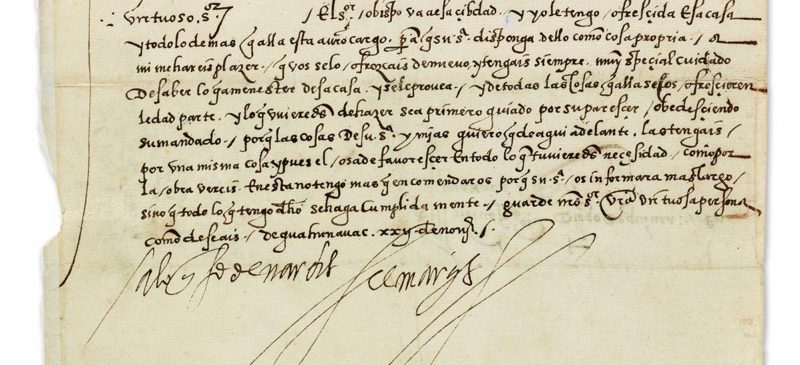 virtuoso. sºr / El sºr / obispo va a esa cibdad. y yo le tengo / ofrescida Esa casa
y todo lo demas q alla esta a vro cargo. pa q su sª disponga dello como cosa propria. / a
mi me hareis plazer / q vos se lo / ofrezcais de nuevo, y tengais siempre. muy special cuidado
De saber lo q a menester desa casa. y se le provea / y de todas las cosas q alla se / ofrescieren
le dad parte. y lo q uvieredes de hazer sea primero guiado por su parescer / obedesciendo
su mandado / porq las cosas De su sª y mias quiero q de aqui adelante. las tengais /
por una misma cosa y pues el / os a de favorescer En todo lo q tuvieredes necesidad / como por
la / obra vereis. En esta no tengo mas q en comendaros porq su sª / os informara mas largo /
sino q todo lo q tengo dho se haga Cumplida mente / guarde nro sºr vra virtuosa persona
como deseais / de quahunavac. xxv de novᵉ /.
a lo q
el marqs